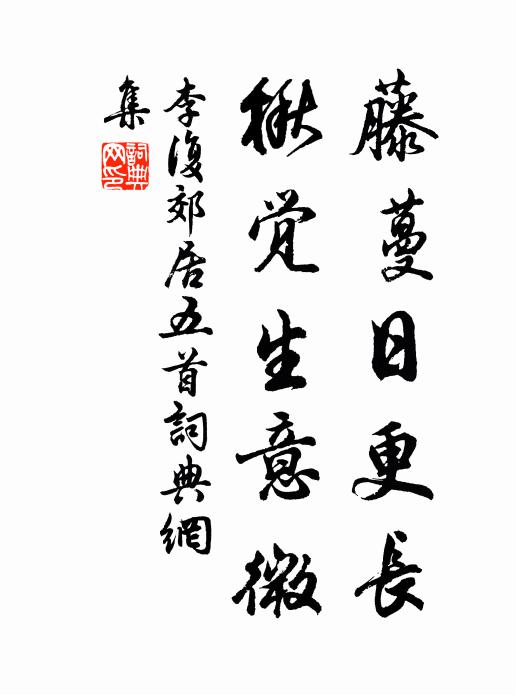 藤蔓日更长
楸觉生意微
李復郊居五首詞典網
集
詞典
网印